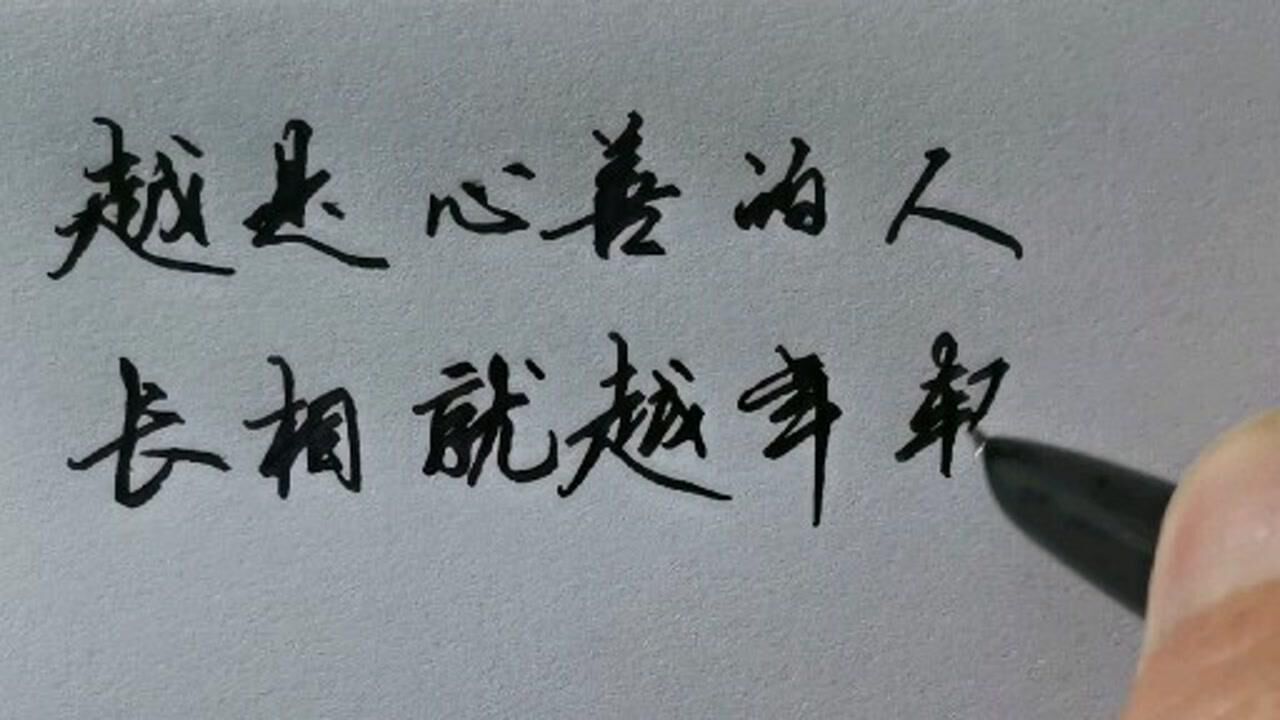 越是心善的人
长相就越年轻